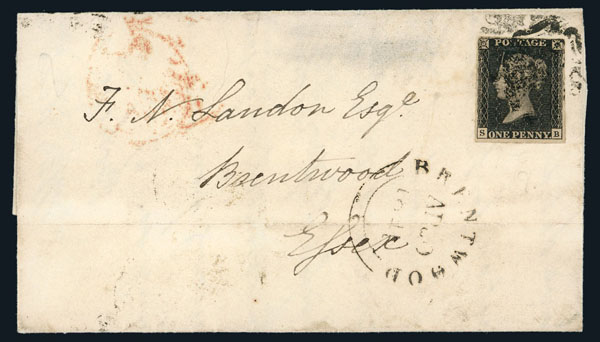 POSTAGE
S ONE PENNY B
F. N. Landon Esqr.
Brentwood
Essex
BRENTWOOD